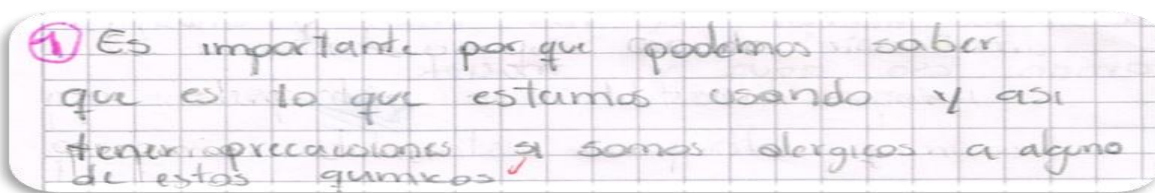 1 Es importante por que podemos saber
que es lo que estamos usando y asi
tener precauciones si somos alergicos a alguno
de estos quimicos